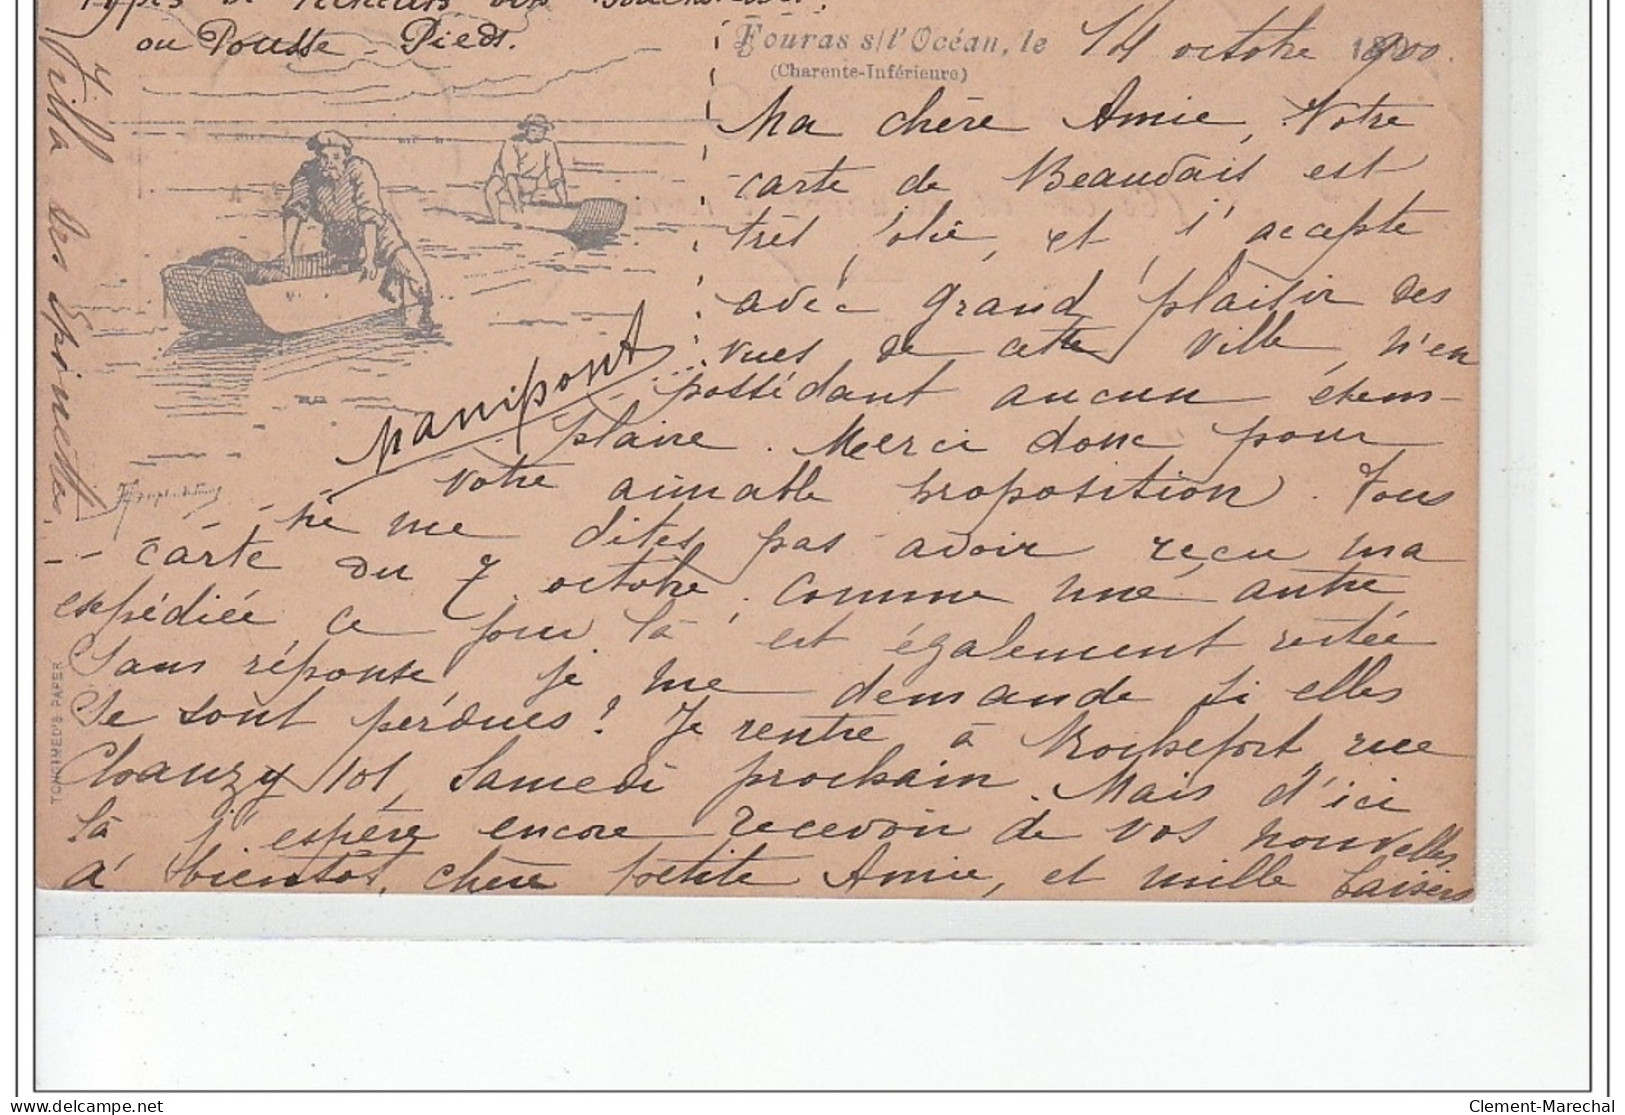 Types de Pêcheurs dits Boucholeurs.
ou Pousse-Pieds.
Fouras s/l'Océan, le 14 octobre 1900.
(Charente-Inférieure)
Ma chère Amie, Votre
carte de Beauvais est
très jolie, et j'accepte
avec grand plaisir des
vues de cette ville, n'en
possédant aucun exem-
plaire. Merci donc pour
votre aimable proposition. Vous
ne me dites pas avoir reçu ma
carte du 7 octobre, comme une autre
expédiée ce jour là est également restée
sans réponse je me demande si elles
se sont perdues? Je rentre à Rochefort, rue
Chanzy 101, Samedi prochain. Mais d'ici
là j'espère encore recevoir de vos nouvelles
à bientôt, chère petite Amie, et mille baisers
Manipont
Villa des Epinettes.
TORCIMED'S PAPER